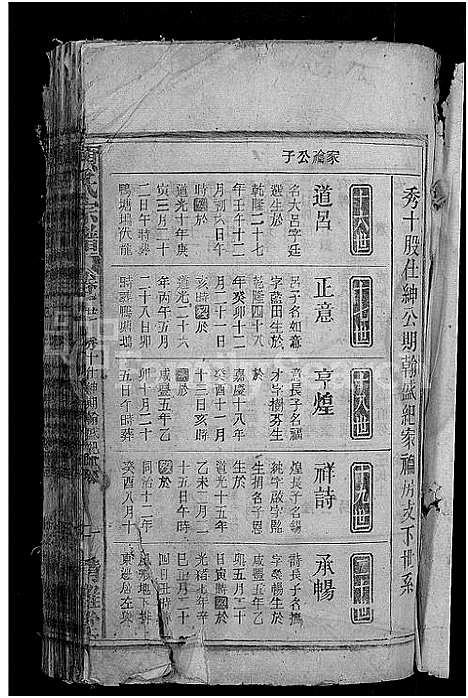 秀十股仕紳公期翰盛紀家禴房支下世系
家禴公子
十六世
道呂
名大呂字廷
選生於
乾隆二十七
年壬午十二
月初六日午
時歿於
道光十年庚
寅三月二十
二日午時葬
鴨塘塢伏龍
十七世
正意
呂子名如意
字藍田生於
乾隆四十八
年癸卯十二
月二十一日
亥時歿於
道光二十六
年丙午五月
二十八日卯
時葬鴨塘塢
十八世
亨煌
意長子名
才字樹芬生
於
嘉慶十八年
癸酉十一月
十三日亥時
歿於
咸豐五年乙
卯十月二十
五日午時葬
十九世
祥詩
煌長子名錫
純字啟字
生捐名子恩
生於
道光十五年
乙未二月二
十五日午時
歿於
同治十二年
癸酉八月十
二十世
承暢
詩長子名
字榮暢生於
咸豐五年乙
卯五月二十
日寅時歿於
光緒北年辛
巳正月二十
四日丑時
地下葬
東邊屋左
氏宗譜
秀十仕紳期翰盛紀家